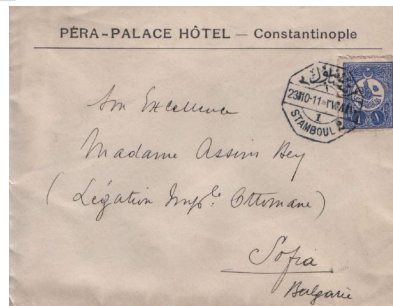 PÉRA-PALACE HÔTEL — Constantinople
STAMBOUL
1
Son Excellence
Madame Assim Bey
(Légation Imple Ottomane)
Sofia
Bulgarie